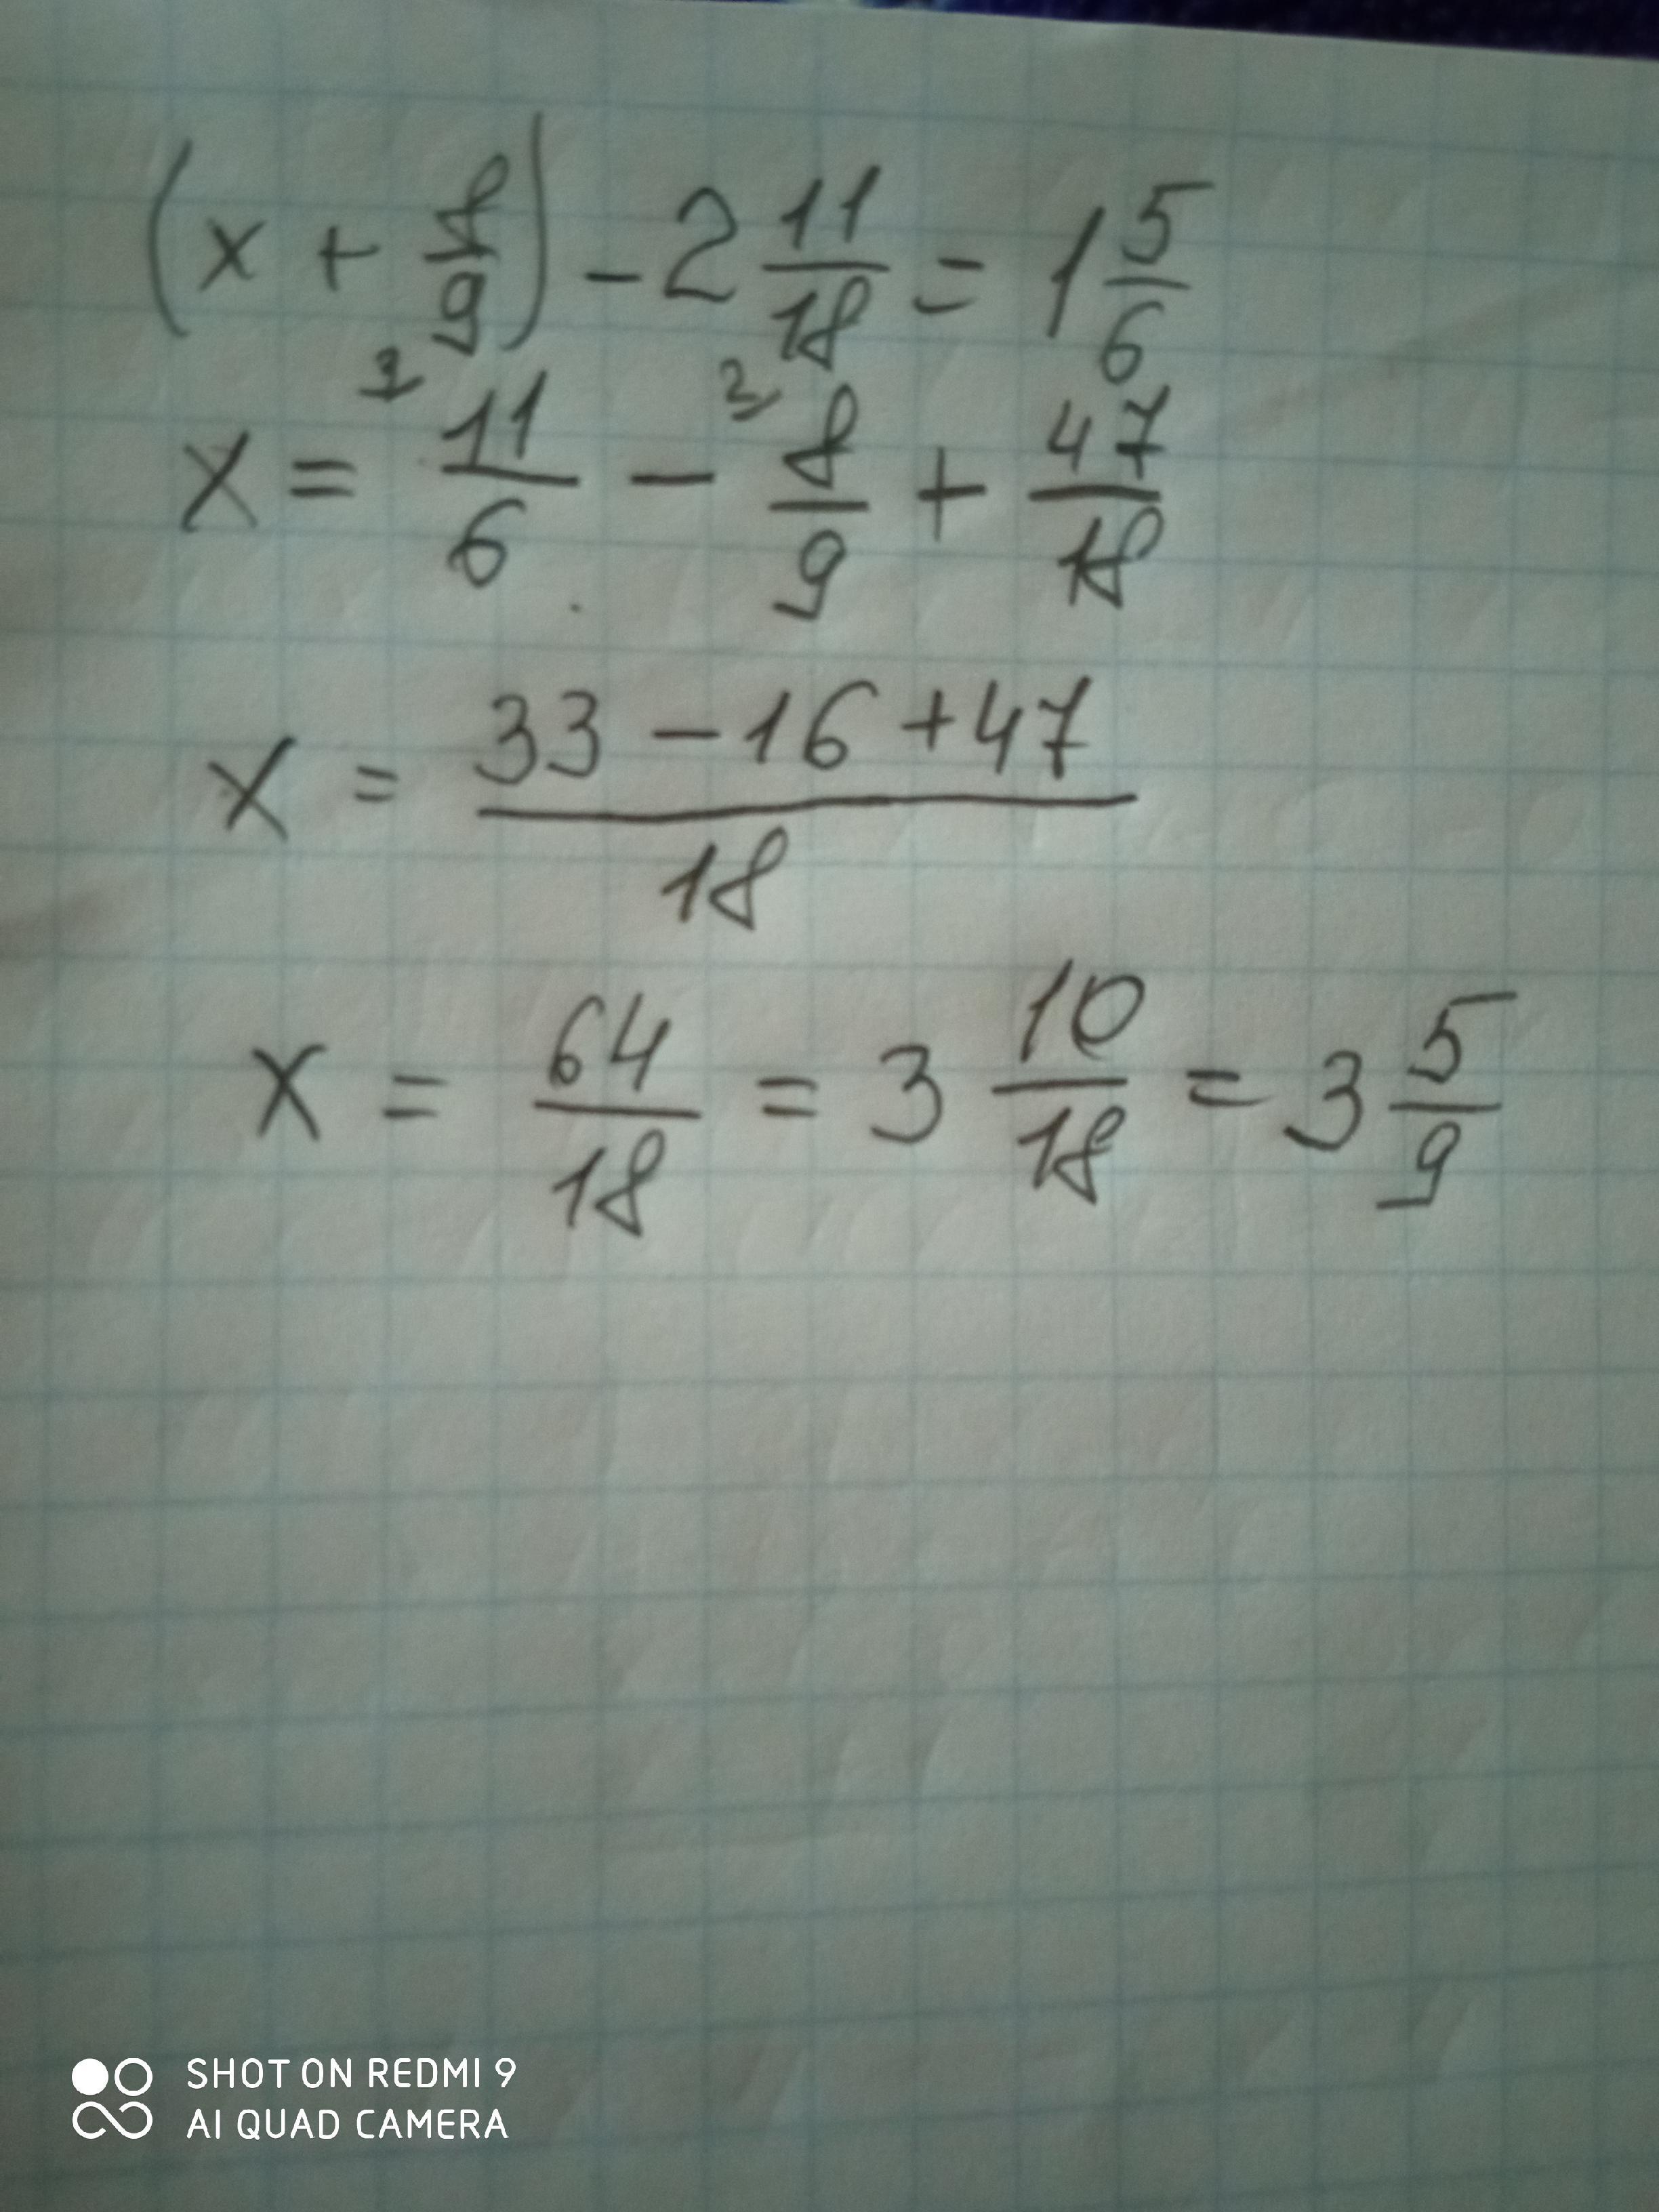 (x + 8/9) - 2 11/18 = 1 5/6
x = 3 11/6 - 2 8/9 + 47/18
x = 33 - 16 + 47 / 18
x = 64/18 = 3 10/18 = 3 5/9
SHOT ON REDMI 9
AI QUAD CAMERA